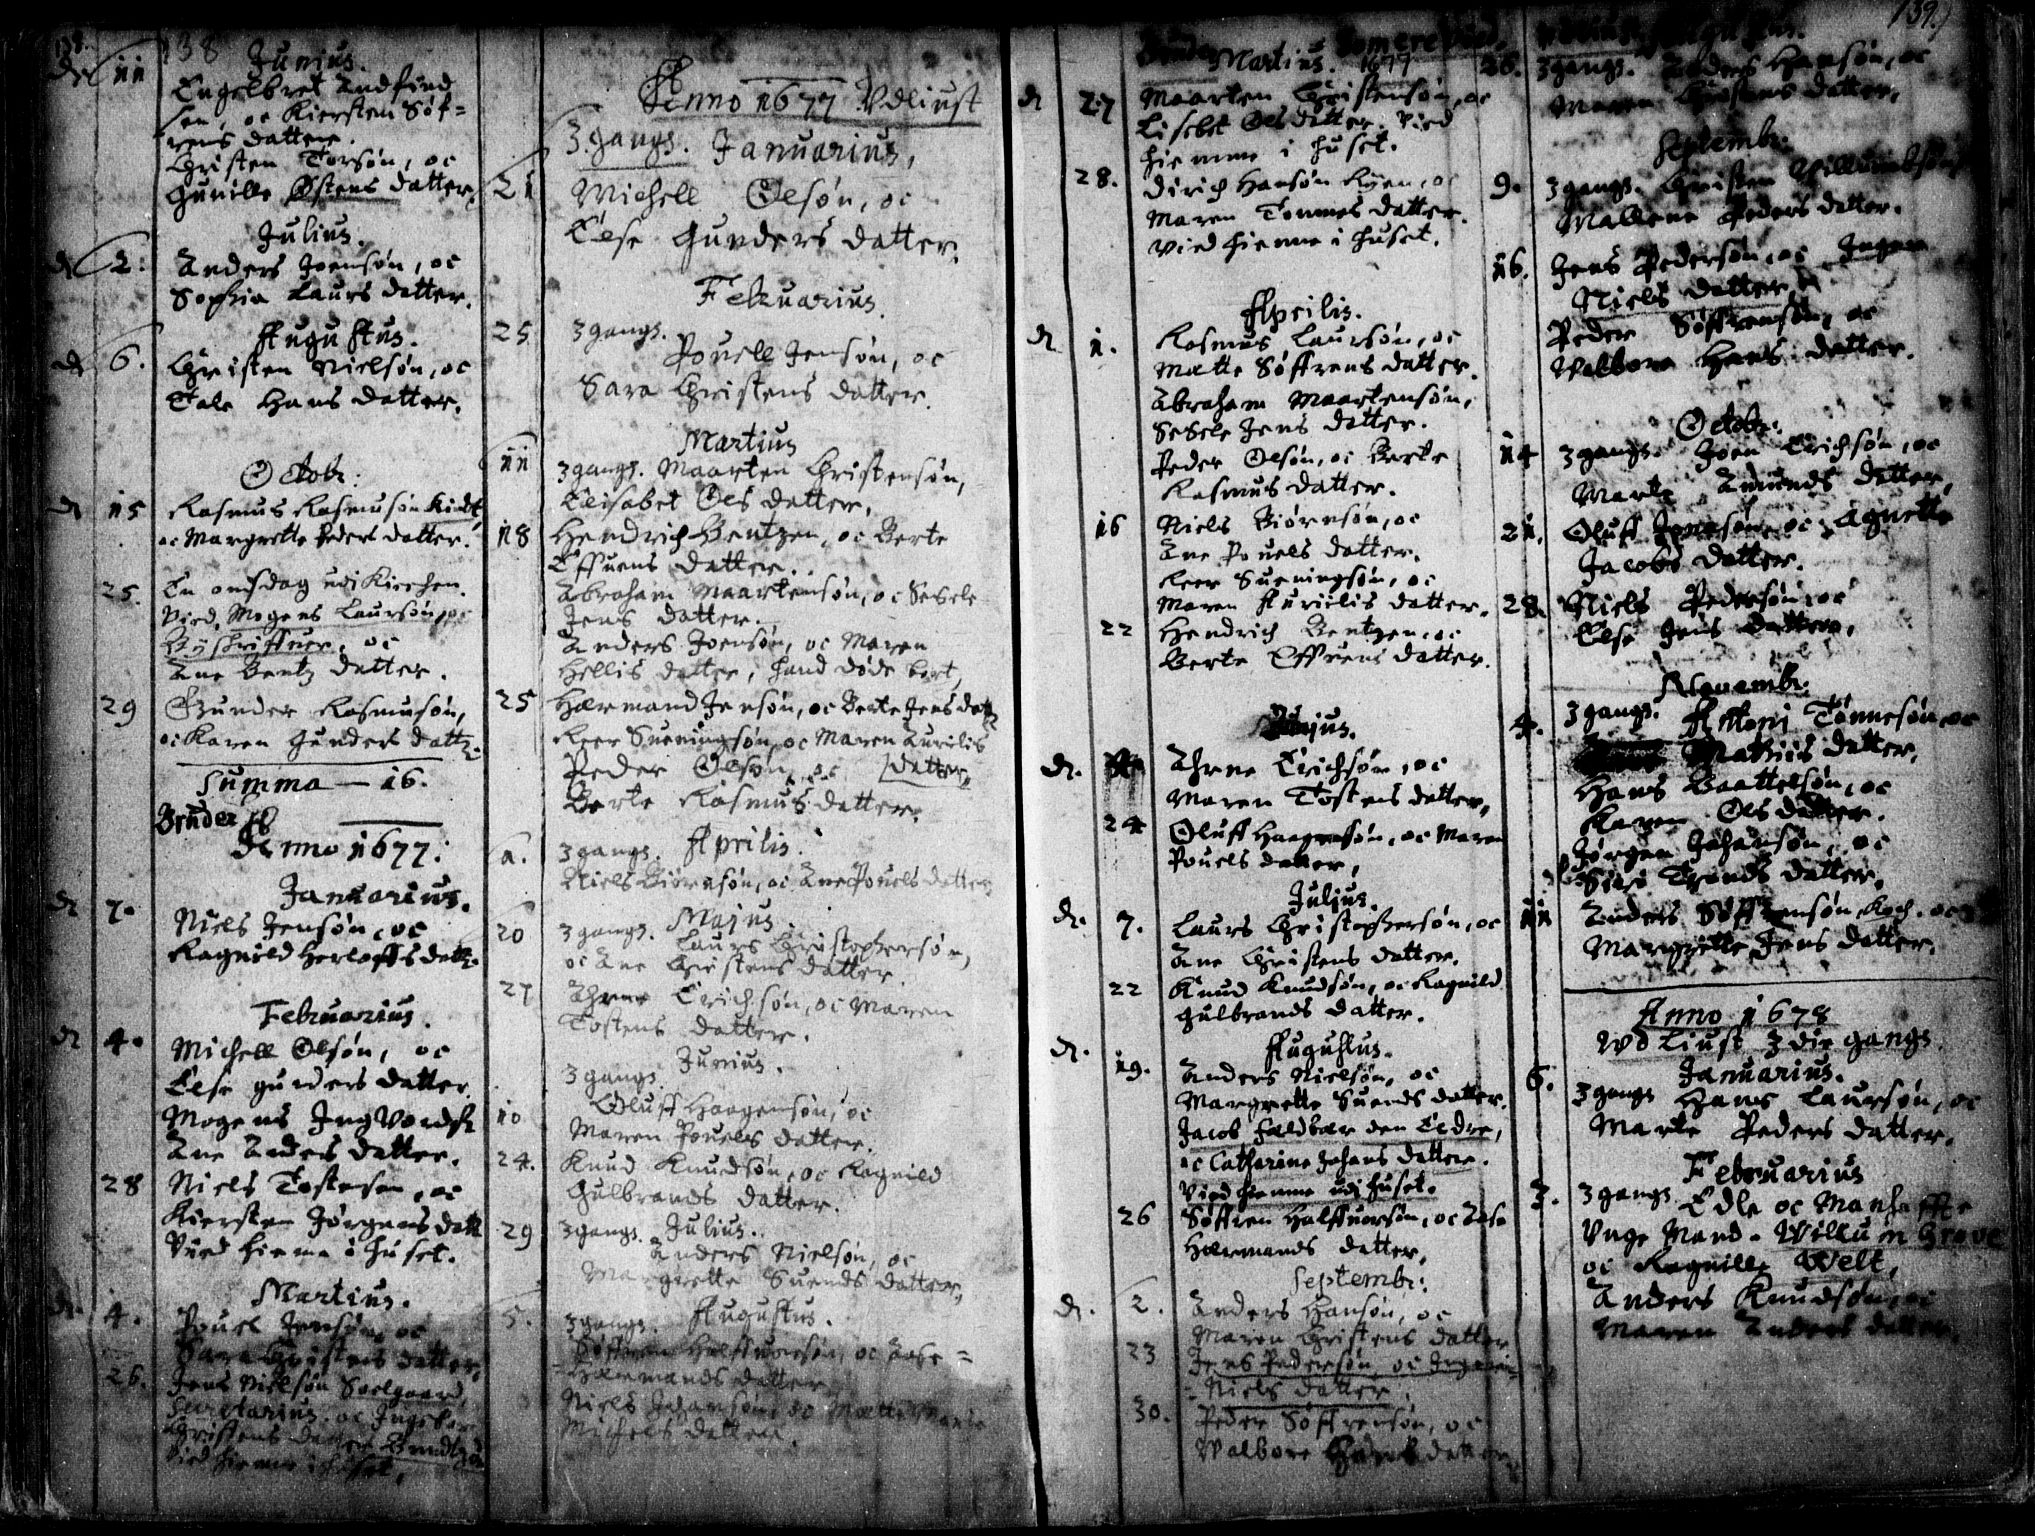 138
Junius.
d 11 Engelbret Andfind
sen, oc Kiersten Søf=
rens datter.
Christen Torsøn, oc
Gunille Østens datter.
Julius.
d 2. Anders Joensøn, oc
Sophia Laurs datter.
Augustus.
d 6. Christen Nielsøn, oc
Tale Hans datter.
Octobr:
d 15 Rasmus Rasmusøn Kindt,
oc Margrette Peders datter.
25. En onsdag udi Kirchen.
Vied, Mogens Laursøn, oc
Byskriffuer, oc
Ane Bentz datter.
29 Gunder Rasmusøn,
oc Karen Gunders datt.
Summa — 16.
Bruder
Anno 1677.
Januarius.
d 7. Niels Jensøn, oc
Ragnild Herloffs datt.
Februarius.
d 4. Michell Olsøn, oc
Else Gunders datter.
Mogens Ingvords
Ane Anders datter.
28 Niels Tostensen, oc
Kiersten Jørgens datt
Vied hiemme i huset.
Martius.
d. 4. Pouel Jensøn, oc
Sara Christens datter,
26. Jens Nielsøn Soelgaard,
Secretarius. oc Ingeb
Christens datter
Vied hiemme i huset.
Anno 1677 Udliust
3 gangs. Januarius,
21 Michell Olsøn, oc
Else Gunders datter.
Februarius
25 3 gangs.
Pouell Jensøn, oc
Sara Christens datter.
Martius
11 3 gangs. Maarten Christensøn,
Elisabet Ols datter,
18 Hendrich Bentzen, oc Berte
Effuens datter.
Abraham Maartensøn, oc Sesele
Jens datter.
Anders Joensøn, oc Maren
Hellis datter, hand døde bort,
25 Hermand Jensøn, oc Berte Jens datt
Peer Sueningsøn oc Maren Aurilis
Peder Olsøn, oc datter,
Berte Rasmus datter.
Aprilis.
1. 3 gangs.
Niels Biørnsøn, oc Ane Pouels datter
Majus
20 3 gangs.
Laurs Christophersøn,
oc Ane Christens datter
27 Ahrne Erichsøn, oc Maren
Tostens datter.
Junius.
3 gangs.
10 Oluff Haagensøn, oc
Maren Pouels datter.
24. Knud Knudsøn, oc Ragnild
Gulbrands datter.
29 3 gangs. Julius.
Anders Nielsøn, oc
Margrette Suends datter,
5. 3 gangs. Augustus.
Søffren Halffuorsøn, oc Aase =
= Hermands datter
Niels Johansøn, oc Mætte
Michels datter.
Martius. 1677
d 27 Maarten Christensøn, oc
Lisebet Ols datter. Vied
hiemme i huset.
28. Dirich Hansøn Ryen, oc
Maren Tommes datter.
Vied hiemme i huset.
Aprilis.
d 1. Rasmus Laursøn, oc
Mætte Søffrens datter.
Abraham Maartensøn,
Sesele Jens datter.
Peder Olsøn, oc Berte
Rasmus datter.
16 Niels Biørnsøn, oc
Ane Pouels datter.
Peer Sueningsøn, oc
Maren Aurielis datter.
22 Hendrich Bentzen, oc
Berte Effuens datter.
Junius.
d. Ahrne Erichsøn, oc
Maren Tostens datter,
24 Oluff Haagensøn, oc Maren
Pouels datter,
Julius.
d. 7. Laurs Christophersøn, oc
Ane Christens datter.
22 Knud Knudsøn, oc Ragnild
Gulbrands datter.
Augustus.
d. 19. Anders Nielsøn, oc
Margrette Suends datter.
Jacob Faldbær den Eldre,
oc Catharina Johans datter.
Vied hiemme udi huset.
26 Søffren Halffuorsøn, oc Aase
Hermands datter.
Septembr:
d. 2. Anders Hansøn, oc
Maren Christens datter
23 Jens Pedersøn, oc Ingeri
= Niels datter.
30. Peder Søffrensøn, oc
Walbore Hans datter
139.)
26. 3 gangs. Anders Hansøn, oc
Maren Christens datter.
Septembr:
9. 3 gangs. Christen Villumbsøn
Mallene Peders datter.
16. Jens Pedersøn, oc Ingere
Niels datter
Peder Søffrensøn, oc
Walbore Hans datter.
Octobr:
14 3 gangs. Joen Erichsøn, oc
Marte Amunds datter,
21. Oluff Jensøn, oc Agnette
Jacobs datter.
28. Niels Pedersøn, oc
Else Jens datter,
Novembr:
4. 3 gangs. Anttoni Tønnesøn, oc
Mathiis datter.
Hans Baattelsøn, oc
Karen Ols datter.
Jørgen Johansøn, oc
Siri Tronds datter.
11 Anders Søffrensøn Koch. oc
Margrette Jens datter.
Anno 1678
Wdliust 3die gangs.
Januarius.
6. 3 gangs Hans Laursøn, oc
Marte Peders datter.
Februarius
3. 3 gangs Edle oc Manhaffte
Unge Mand. Willum Grove
oc Ragnille Welt,
Anders Knudsøn, oc
Maren Anders datter.